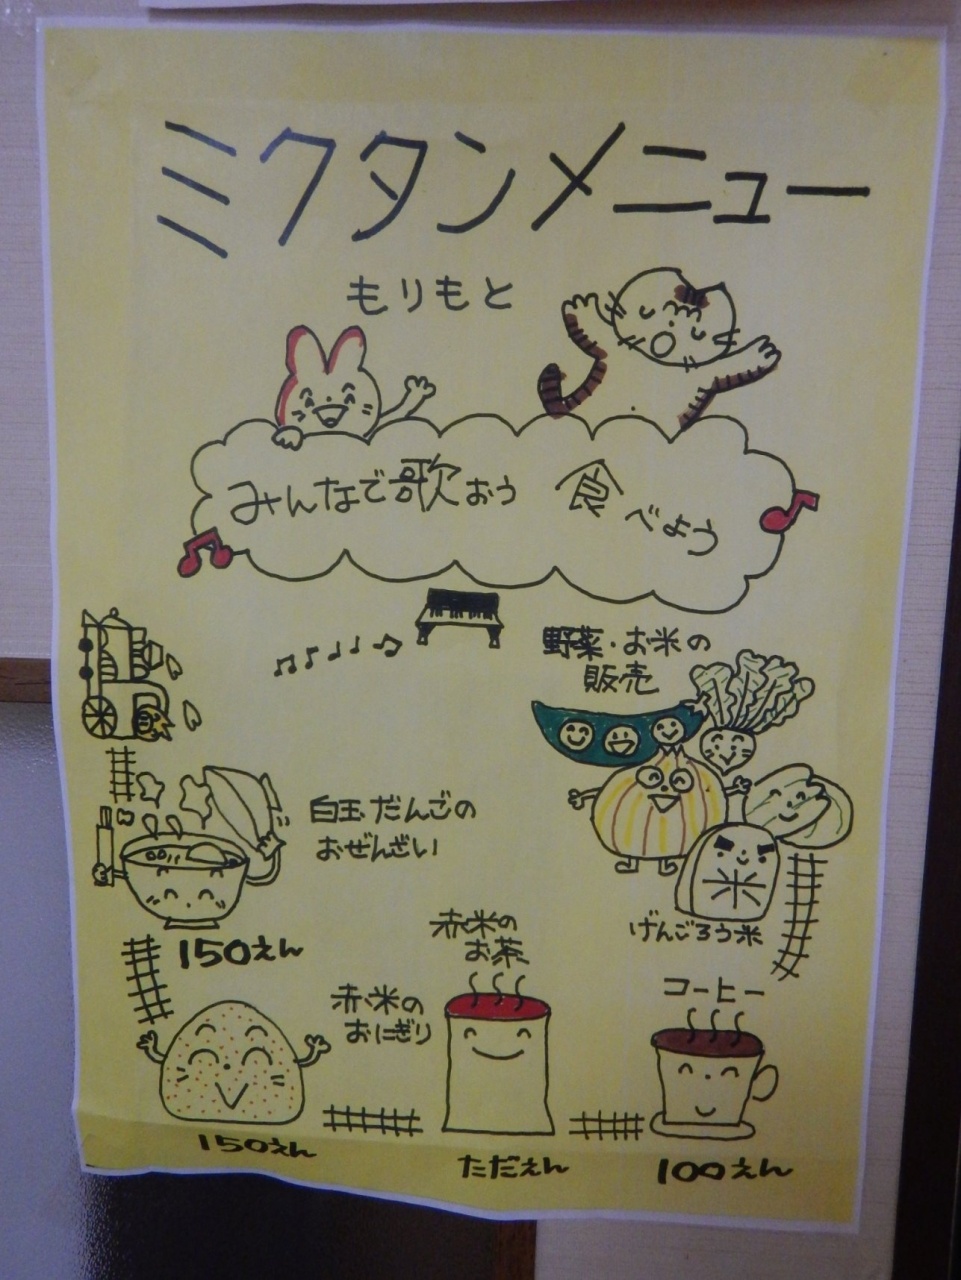 ミクタンメニュー
もりもと
みんなで歌おう 食べよう
野菜・お米の
販売
白玉だんごの
おぜんざい
150えん
米
げんごろう米
赤米の
お茶
赤米の
おにぎり
コーヒー
150えん
ただえん
100えん